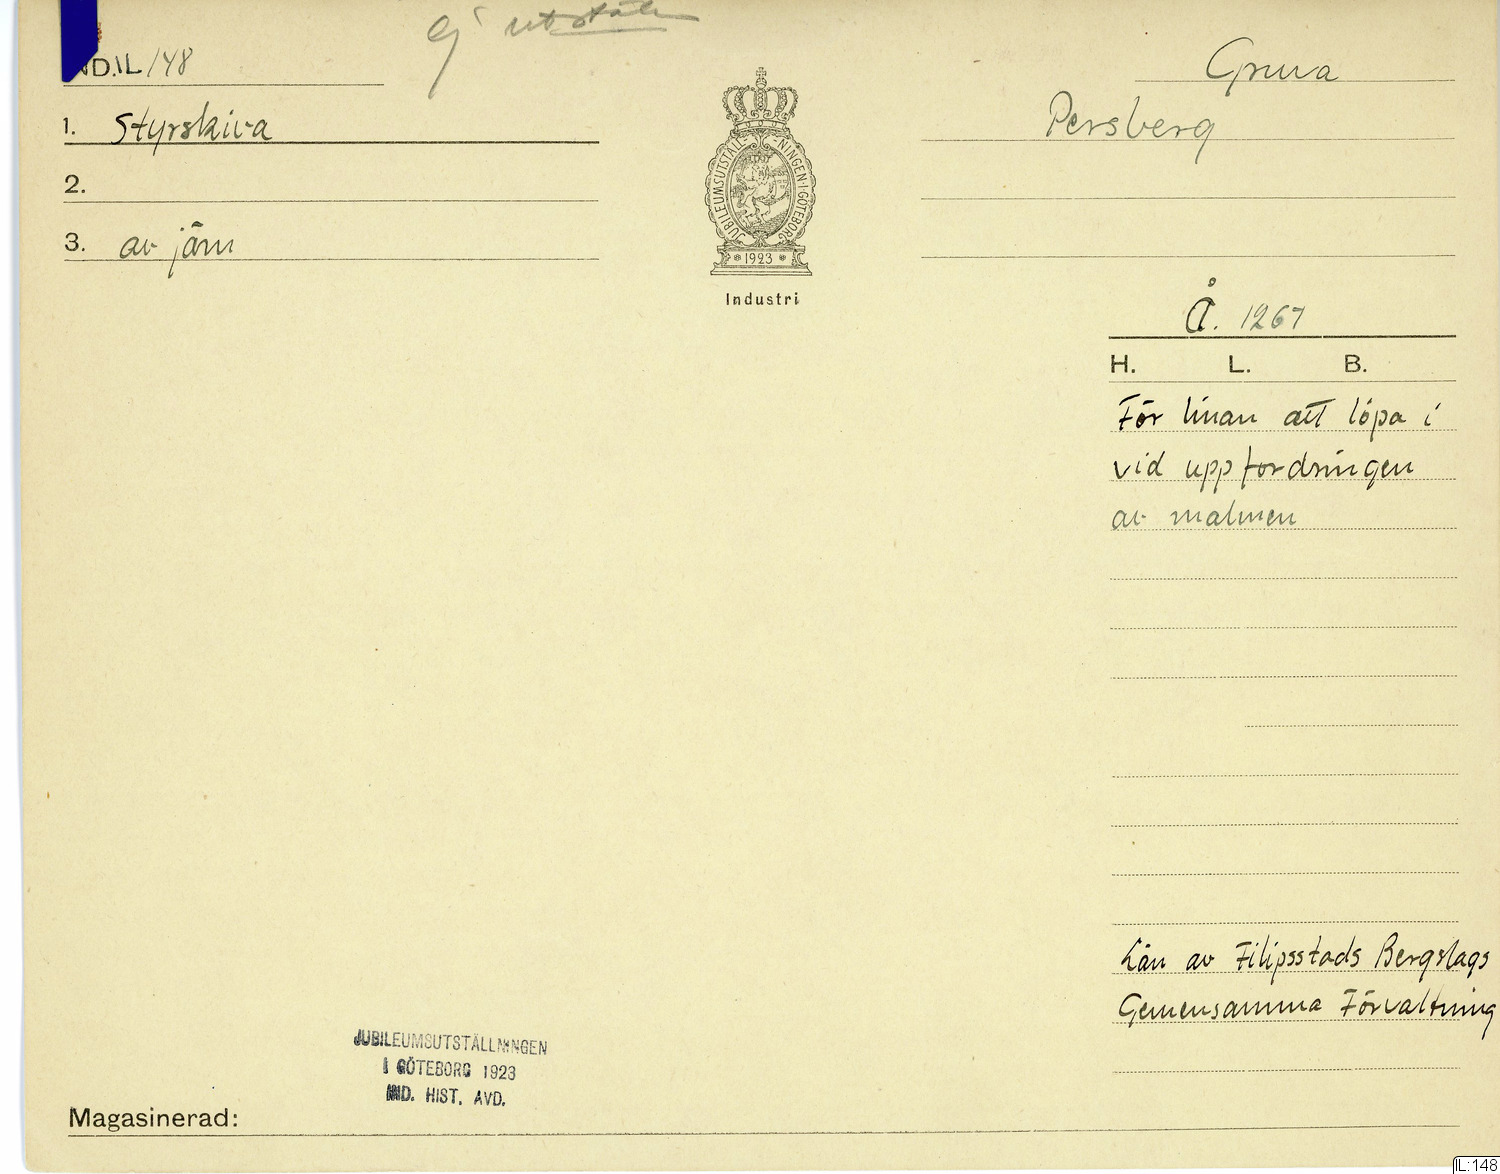 ej utställn
ND.IL/148
Gruva
1. Styrskiva
Persberg
2.
3. av järn
JUBILEUMSUTSTÄLLNINGEN·I·GÖTEBORG
1923
Industri
Å. 1267
H. L. B.
För linan att löpa i
vid uppfordringen
av malmen
Lån av Filipsstads Bergslags
Gemensamma Förvaltning
JUBILEUMSUTSTÄLLNINGEN
I GÖTEBORG 1923
IND. HIST. AVD.
Magasinerad:
IL:148